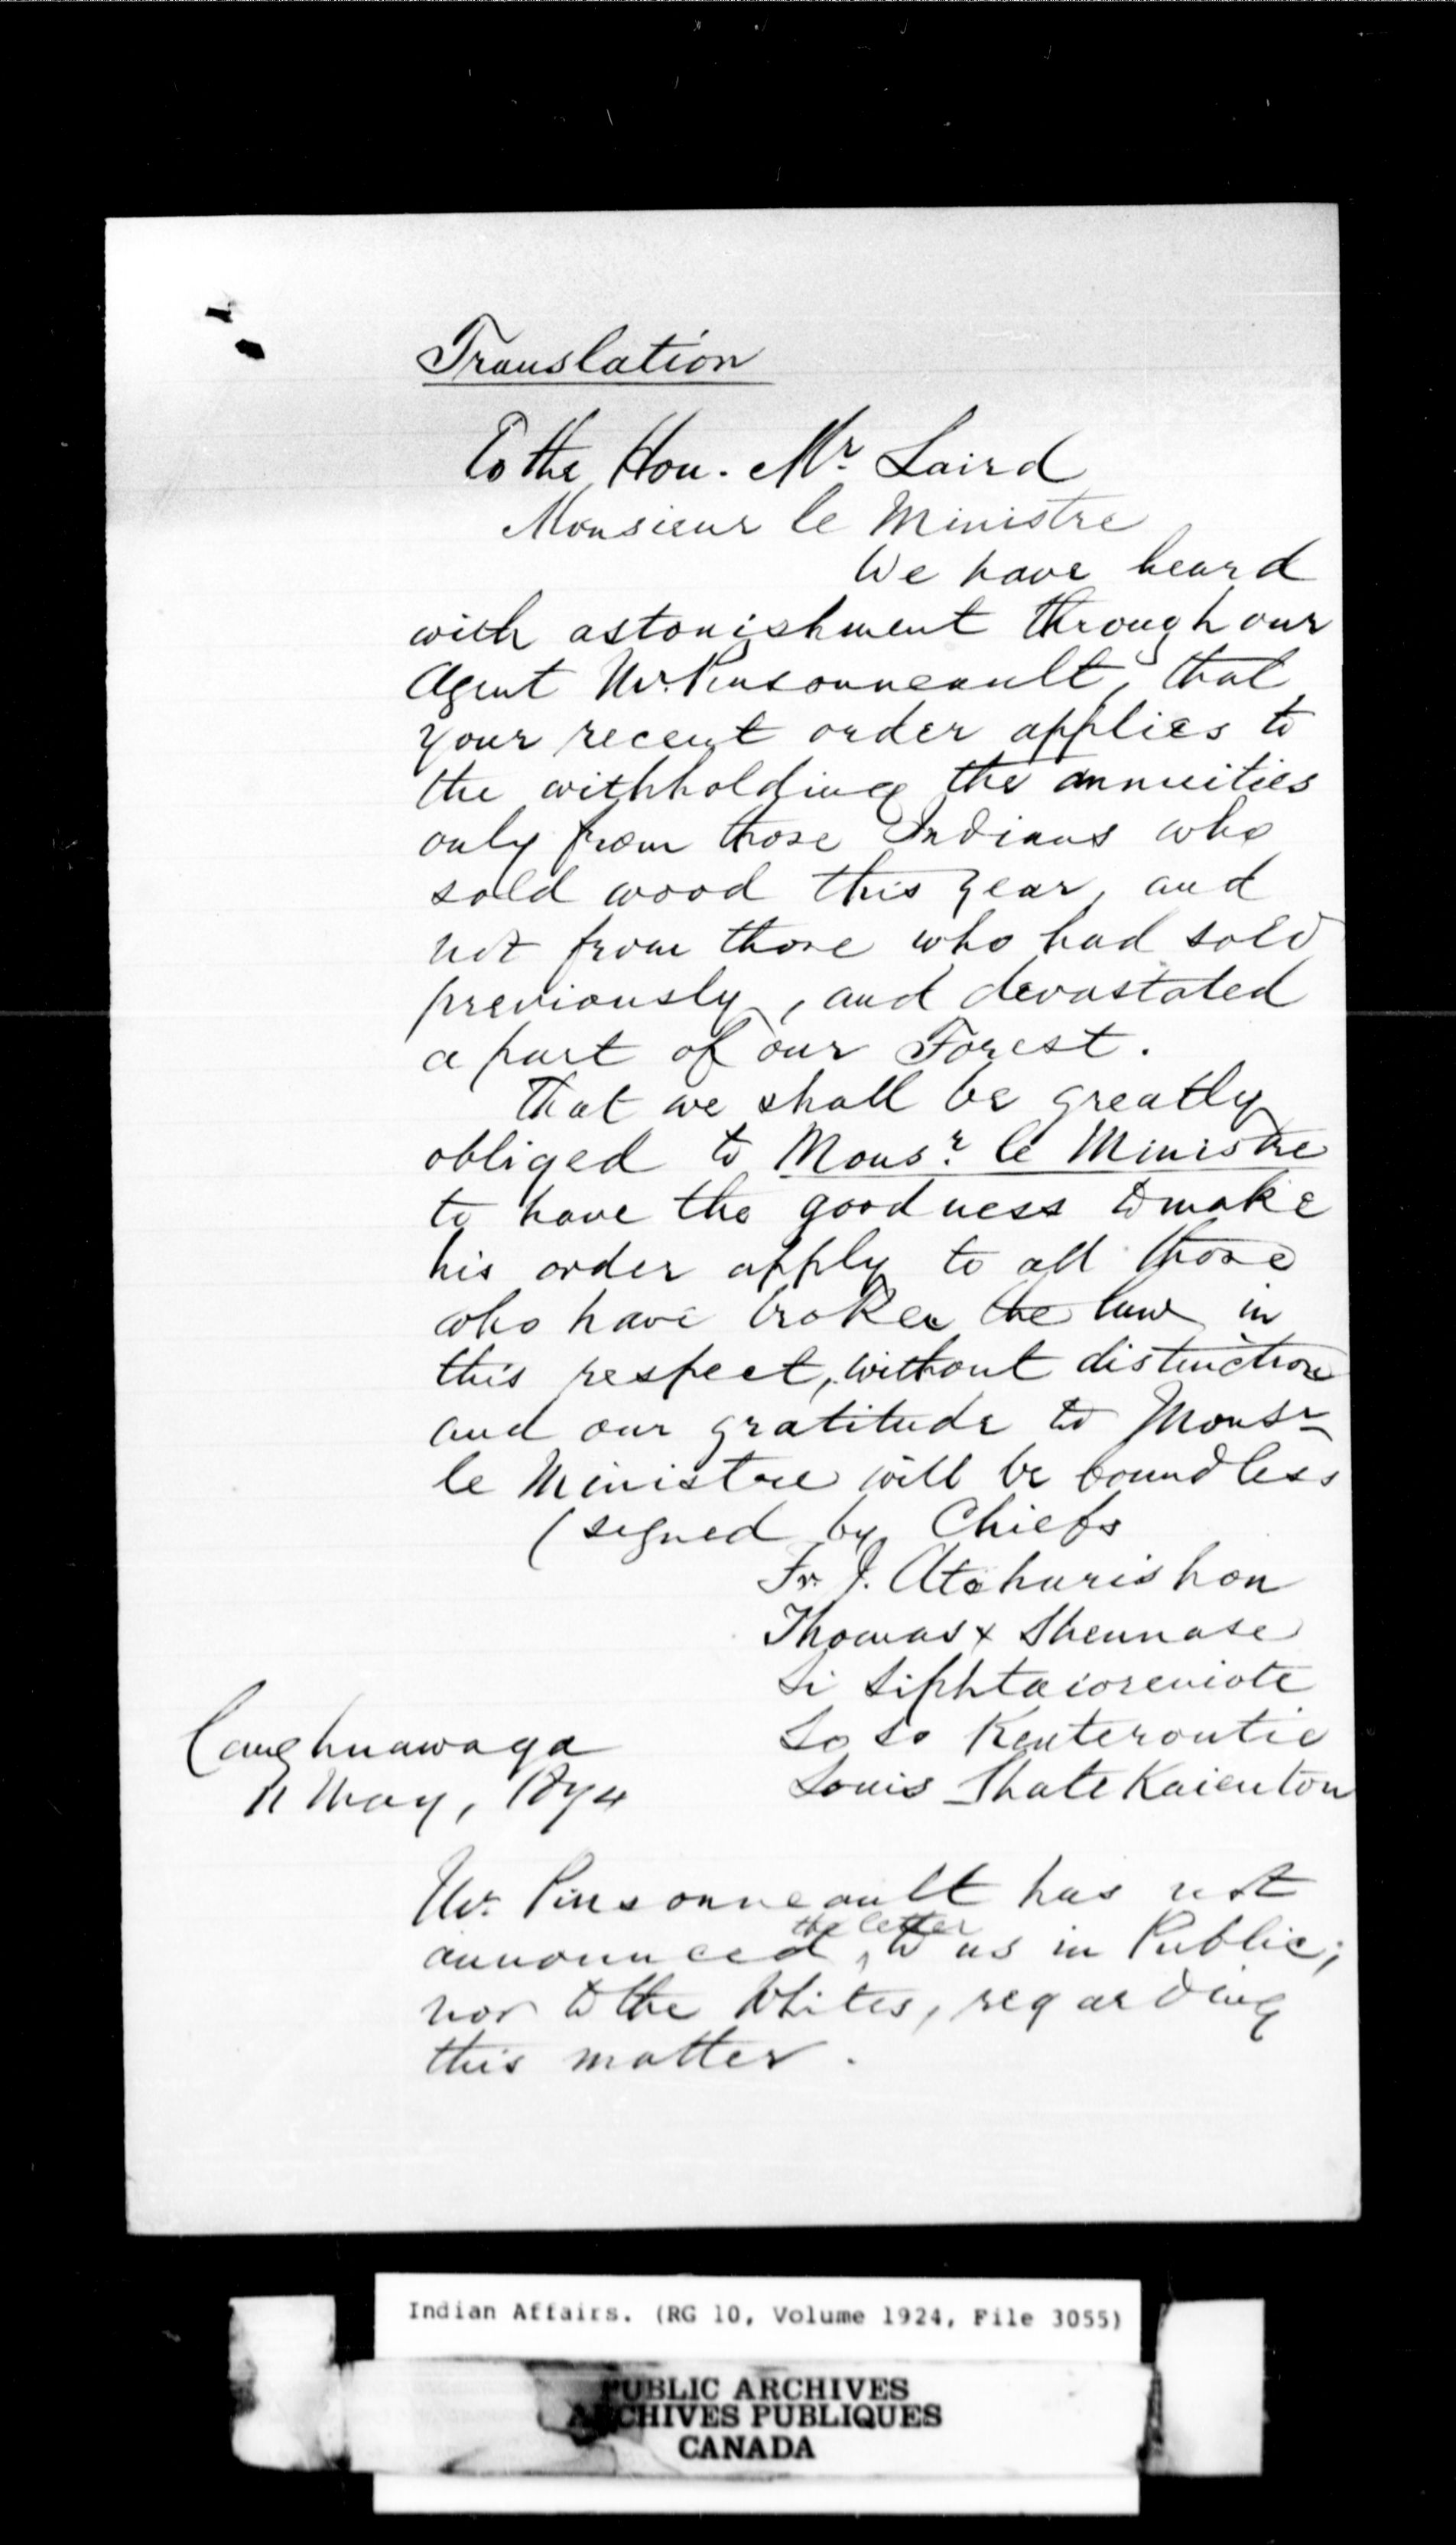 Translation
To the Hon. Mr Laird
Monsieur le Ministre
We have heard
with astonishment through our
Agent Mr. Pinsonneault, that
your recent order applies to
the withholding the annuities
only from those Indians who
sold wood this year, and
not from those who had sold
previously, and devastated
a part of our Forest.
That we shall be greatly
obliged to Monsr. le Ministre
to have the goodness to make
his order apply to all those
who have broken the law in
this respect, without distinction
and our gratitude to Monsr
le Ministre will be boundless
(signed by Chiefs
Fr. J.
Thomas x
Louis
Caughnawaga
11 May, 1874
Mr. Pinsonneault has not
announced the letter to us in Public;
nor to the Whites, regarding
this matter.
Indian Affairs. (RG 10, Volume 1924, File 3055)
PUBLIC ARCHIVES
ARCHIVES PUBLIQUES
CANADA